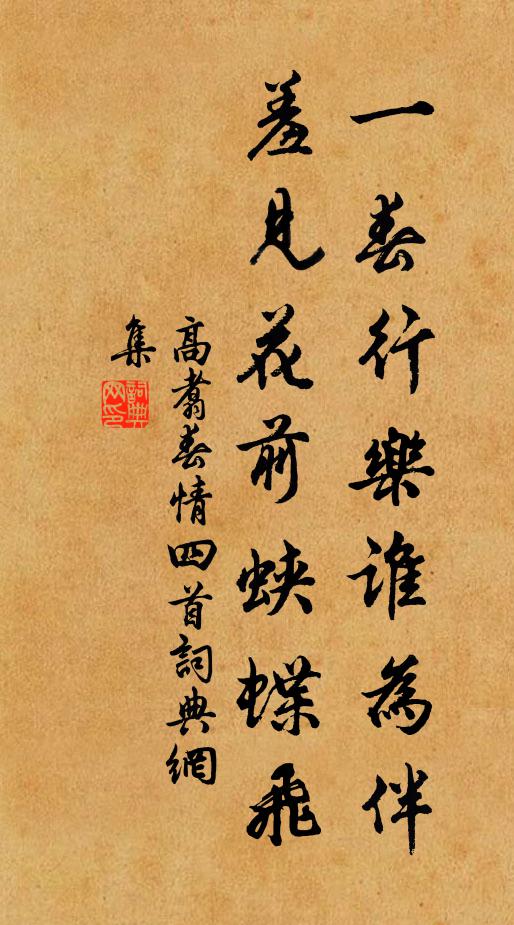 一春行樂誰為伴
羞見花前蛺蝶飛
高翥春情四首詞典網
集
詞典網印